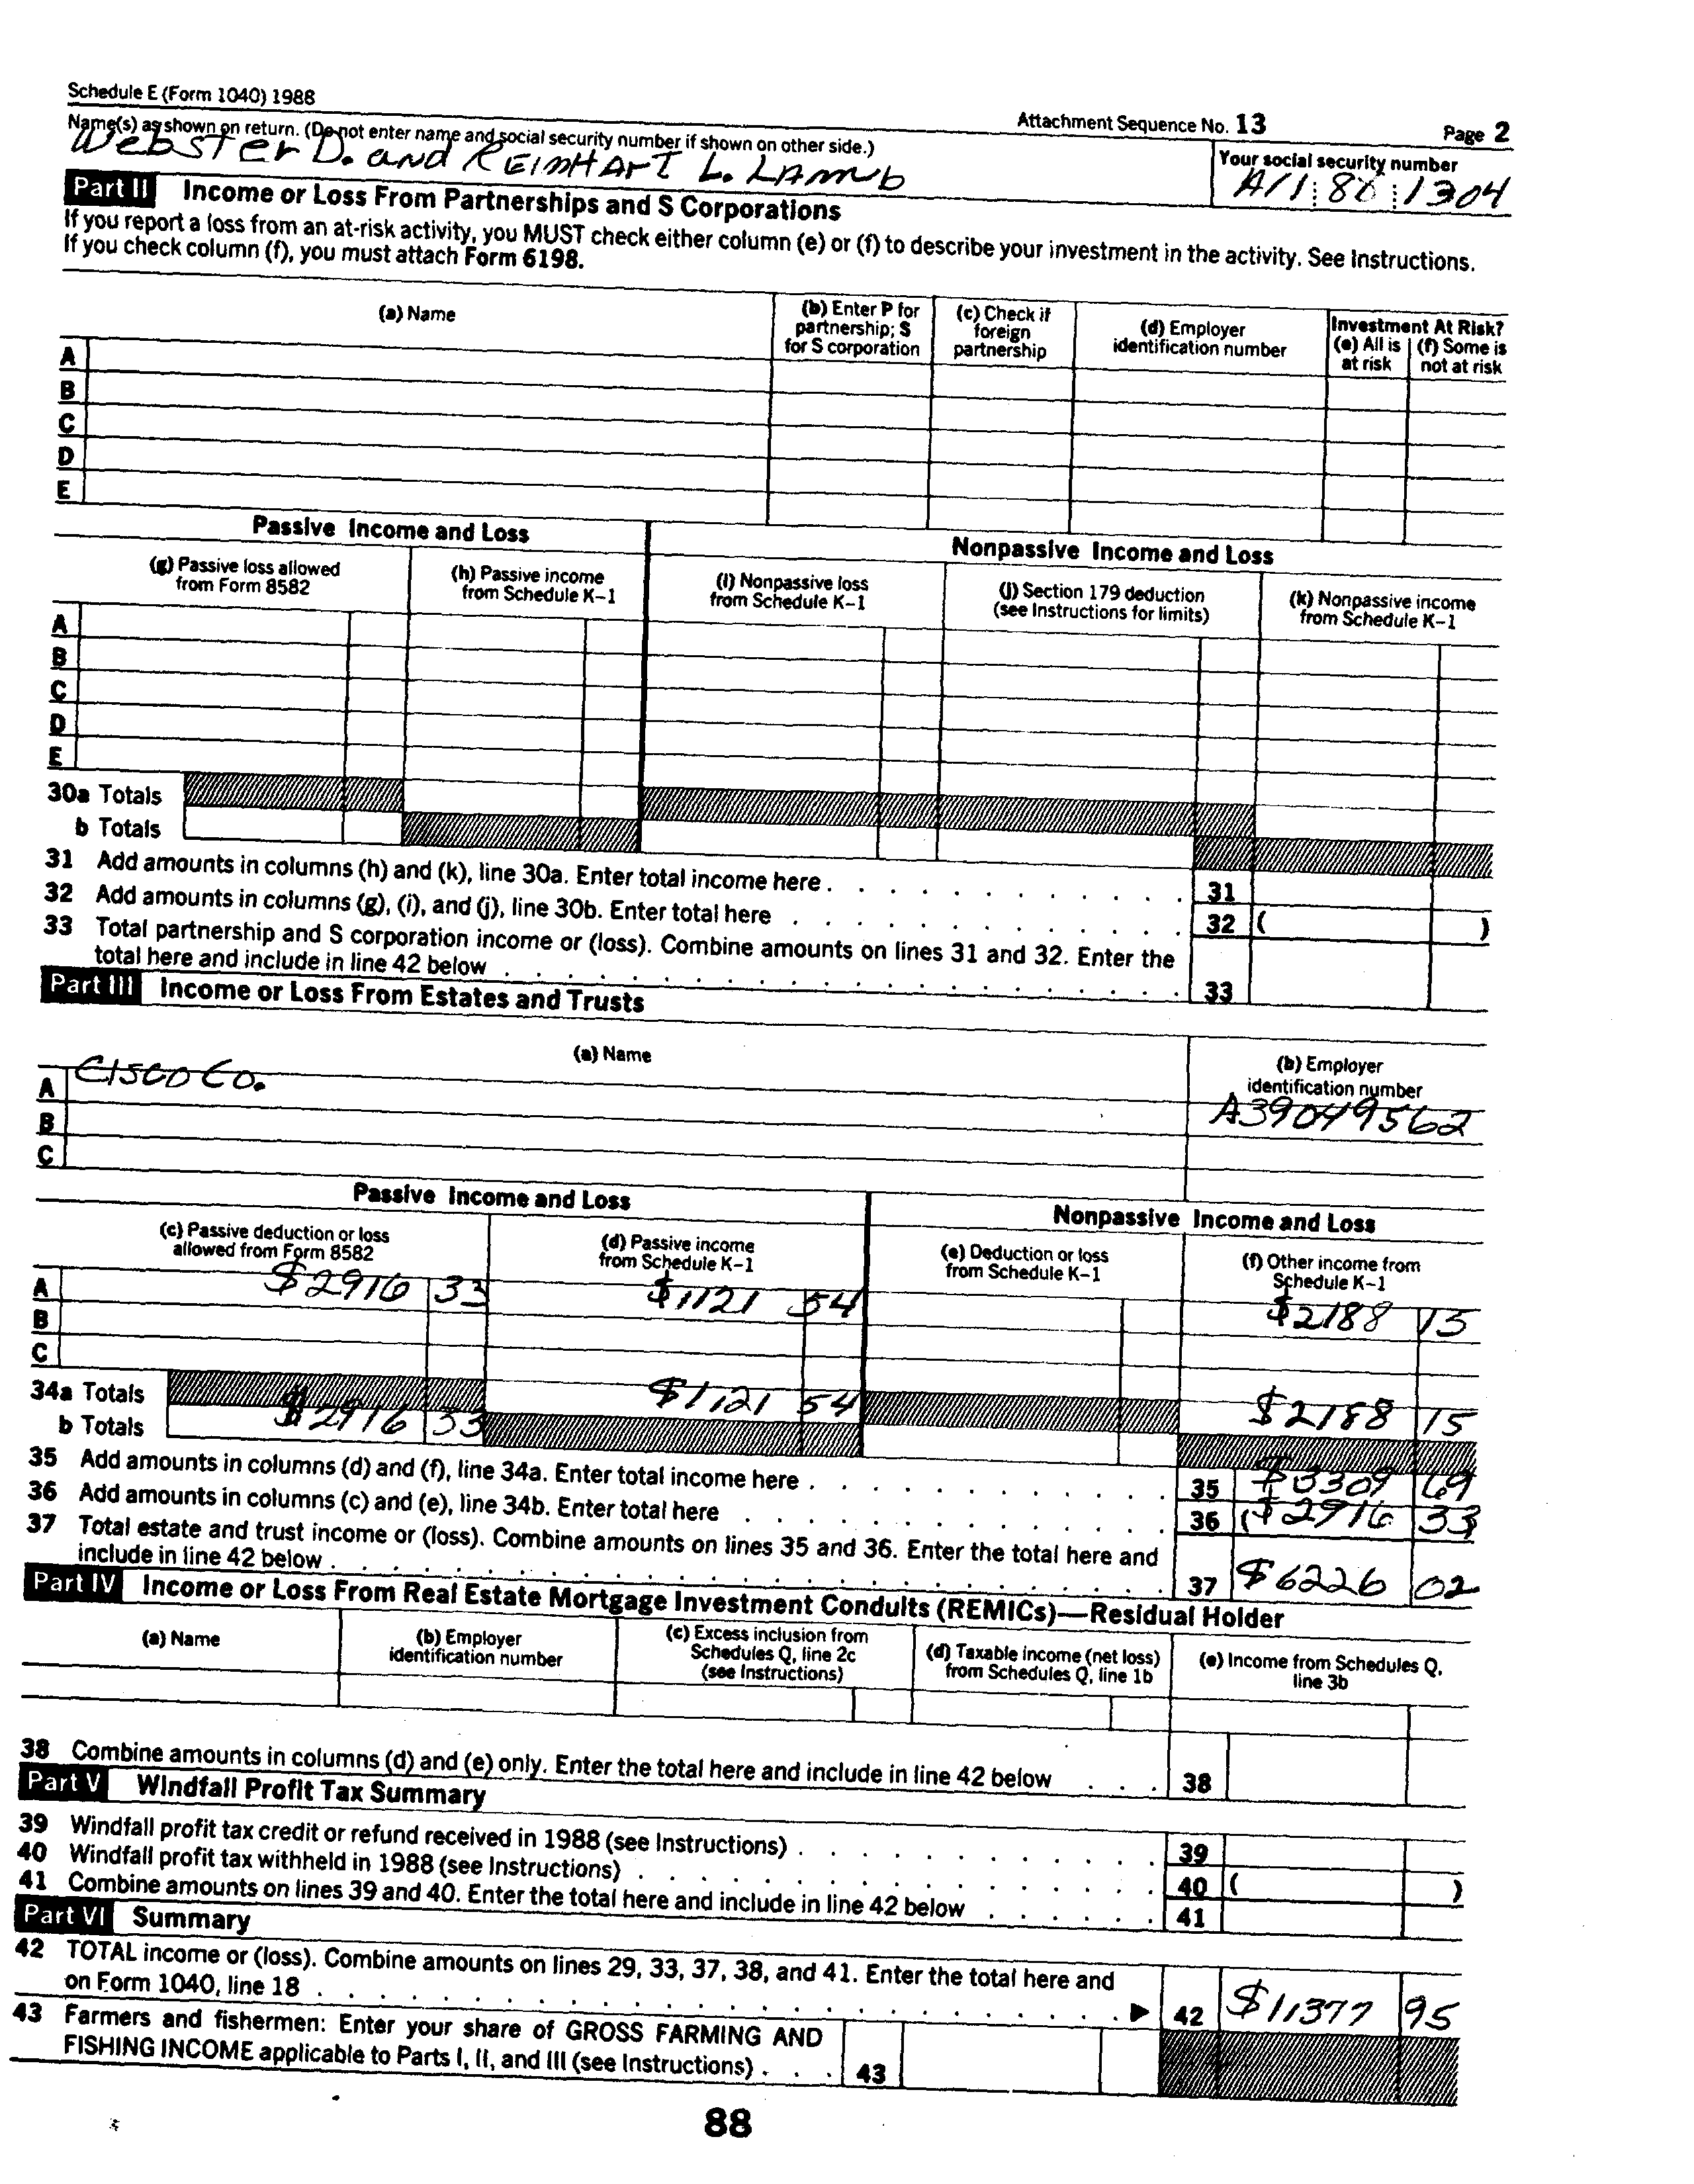 Schedule E (Form 1040) 1988
Attachment Sequence No. 13
Page 2
Name(s) as shown on return. (Do not enter name and social security number if shown on other side.)
Your social security number
Webster D. and REINHART L. LAMB
A11 86 1304
Part II Income or Loss From Partnerships and S Corporations
If you report a loss from an at-risk activity, you MUST check either column (e) or (f) to describe your investment in the activity. See Instructions.
If you check column (f), you must attach Form 6198.
(a) Name
(b) Enter P for partnership; S for S corporation
(c) Check if foreign partnership
(d) Employer identification number
Investment At Risk?
(e) All is at risk
(f) Some is not at risk
A
B
C
D
E
Passive Income and Loss
Nonpassive Income and Loss
(g) Passive loss allowed from Form 8582
(h) Passive income from Schedule K-1
(i) Nonpassive loss from Schedule K-1
(j) Section 179 deduction (see Instructions for limits)
(k) Nonpassive income from Schedule K-1
A
B
C
D
E
30a Totals
b Totals
31 Add amounts in columns (h) and (k), line 30a. Enter total income here . . . . . . . . . . 31
32 Add amounts in columns (g), (i), and (j), line 30b. Enter total here . . . . . . . . . . 32 ( )
33 Total partnership and S corporation income or (loss). Combine amounts on lines 31 and 32. Enter the
total here and include in line 42 below . . . . . . . . . . 33
Part III Income or Loss From Estates and Trusts
(a) Name
(b) Employer identification number
A CISCO CO. A39049562
B
C
Passive Income and Loss
Nonpassive Income and Loss
(c) Passive deduction or loss allowed from Form 8582
(d) Passive income from Schedule K-1
(e) Deduction or loss from Schedule K-1
(f) Other income from Schedule K-1
A $2916 33 $1121 54 $2188 15
B
C
34a Totals $1121 54 $2188 15
b Totals $2916 33
35 Add amounts in columns (d) and (f), line 34a. Enter total income here . . . . . . . . . . 35 $3309 69
36 Add amounts in columns (c) and (e), line 34b. Enter total here . . . . . . . . . . 36 ($2916 33)
37 Total estate and trust income or (loss). Combine amounts on lines 35 and 36. Enter the total here and
include in line 42 below . . . . . . . . . . 37 $6226 02
Part IV Income or Loss From Real Estate Mortgage Investment Conduits (REMICs)—Residual Holder
(a) Name
(b) Employer identification number
(c) Excess inclusion from Schedules Q, line 2c (see Instructions)
(d) Taxable income (net loss) from Schedules Q, line 1b
(e) Income from Schedules Q, line 3b
38 Combine amounts in columns (d) and (e) only. Enter the total here and include in line 42 below . . . 38
Part V Windfall Profit Tax Summary
39 Windfall profit tax credit or refund received in 1988 (see Instructions) . . . . . . . . . . 39
40 Windfall profit tax withheld in 1988 (see Instructions) . . . . . . . . . . 40 ( )
41 Combine amounts on lines 39 and 40. Enter the total here and include in line 42 below . . . . . . 41
Part VI Summary
42 TOTAL income or (loss). Combine amounts on lines 29, 33, 37, 38, and 41. Enter the total here and
on Form 1040, line 18 . . . . . . . . . . ▶ 42 $11377 95
43 Farmers and fishermen: Enter your share of GROSS FARMING AND
FISHING INCOME applicable to Parts I, II, and III (see Instructions) . . . 43
88